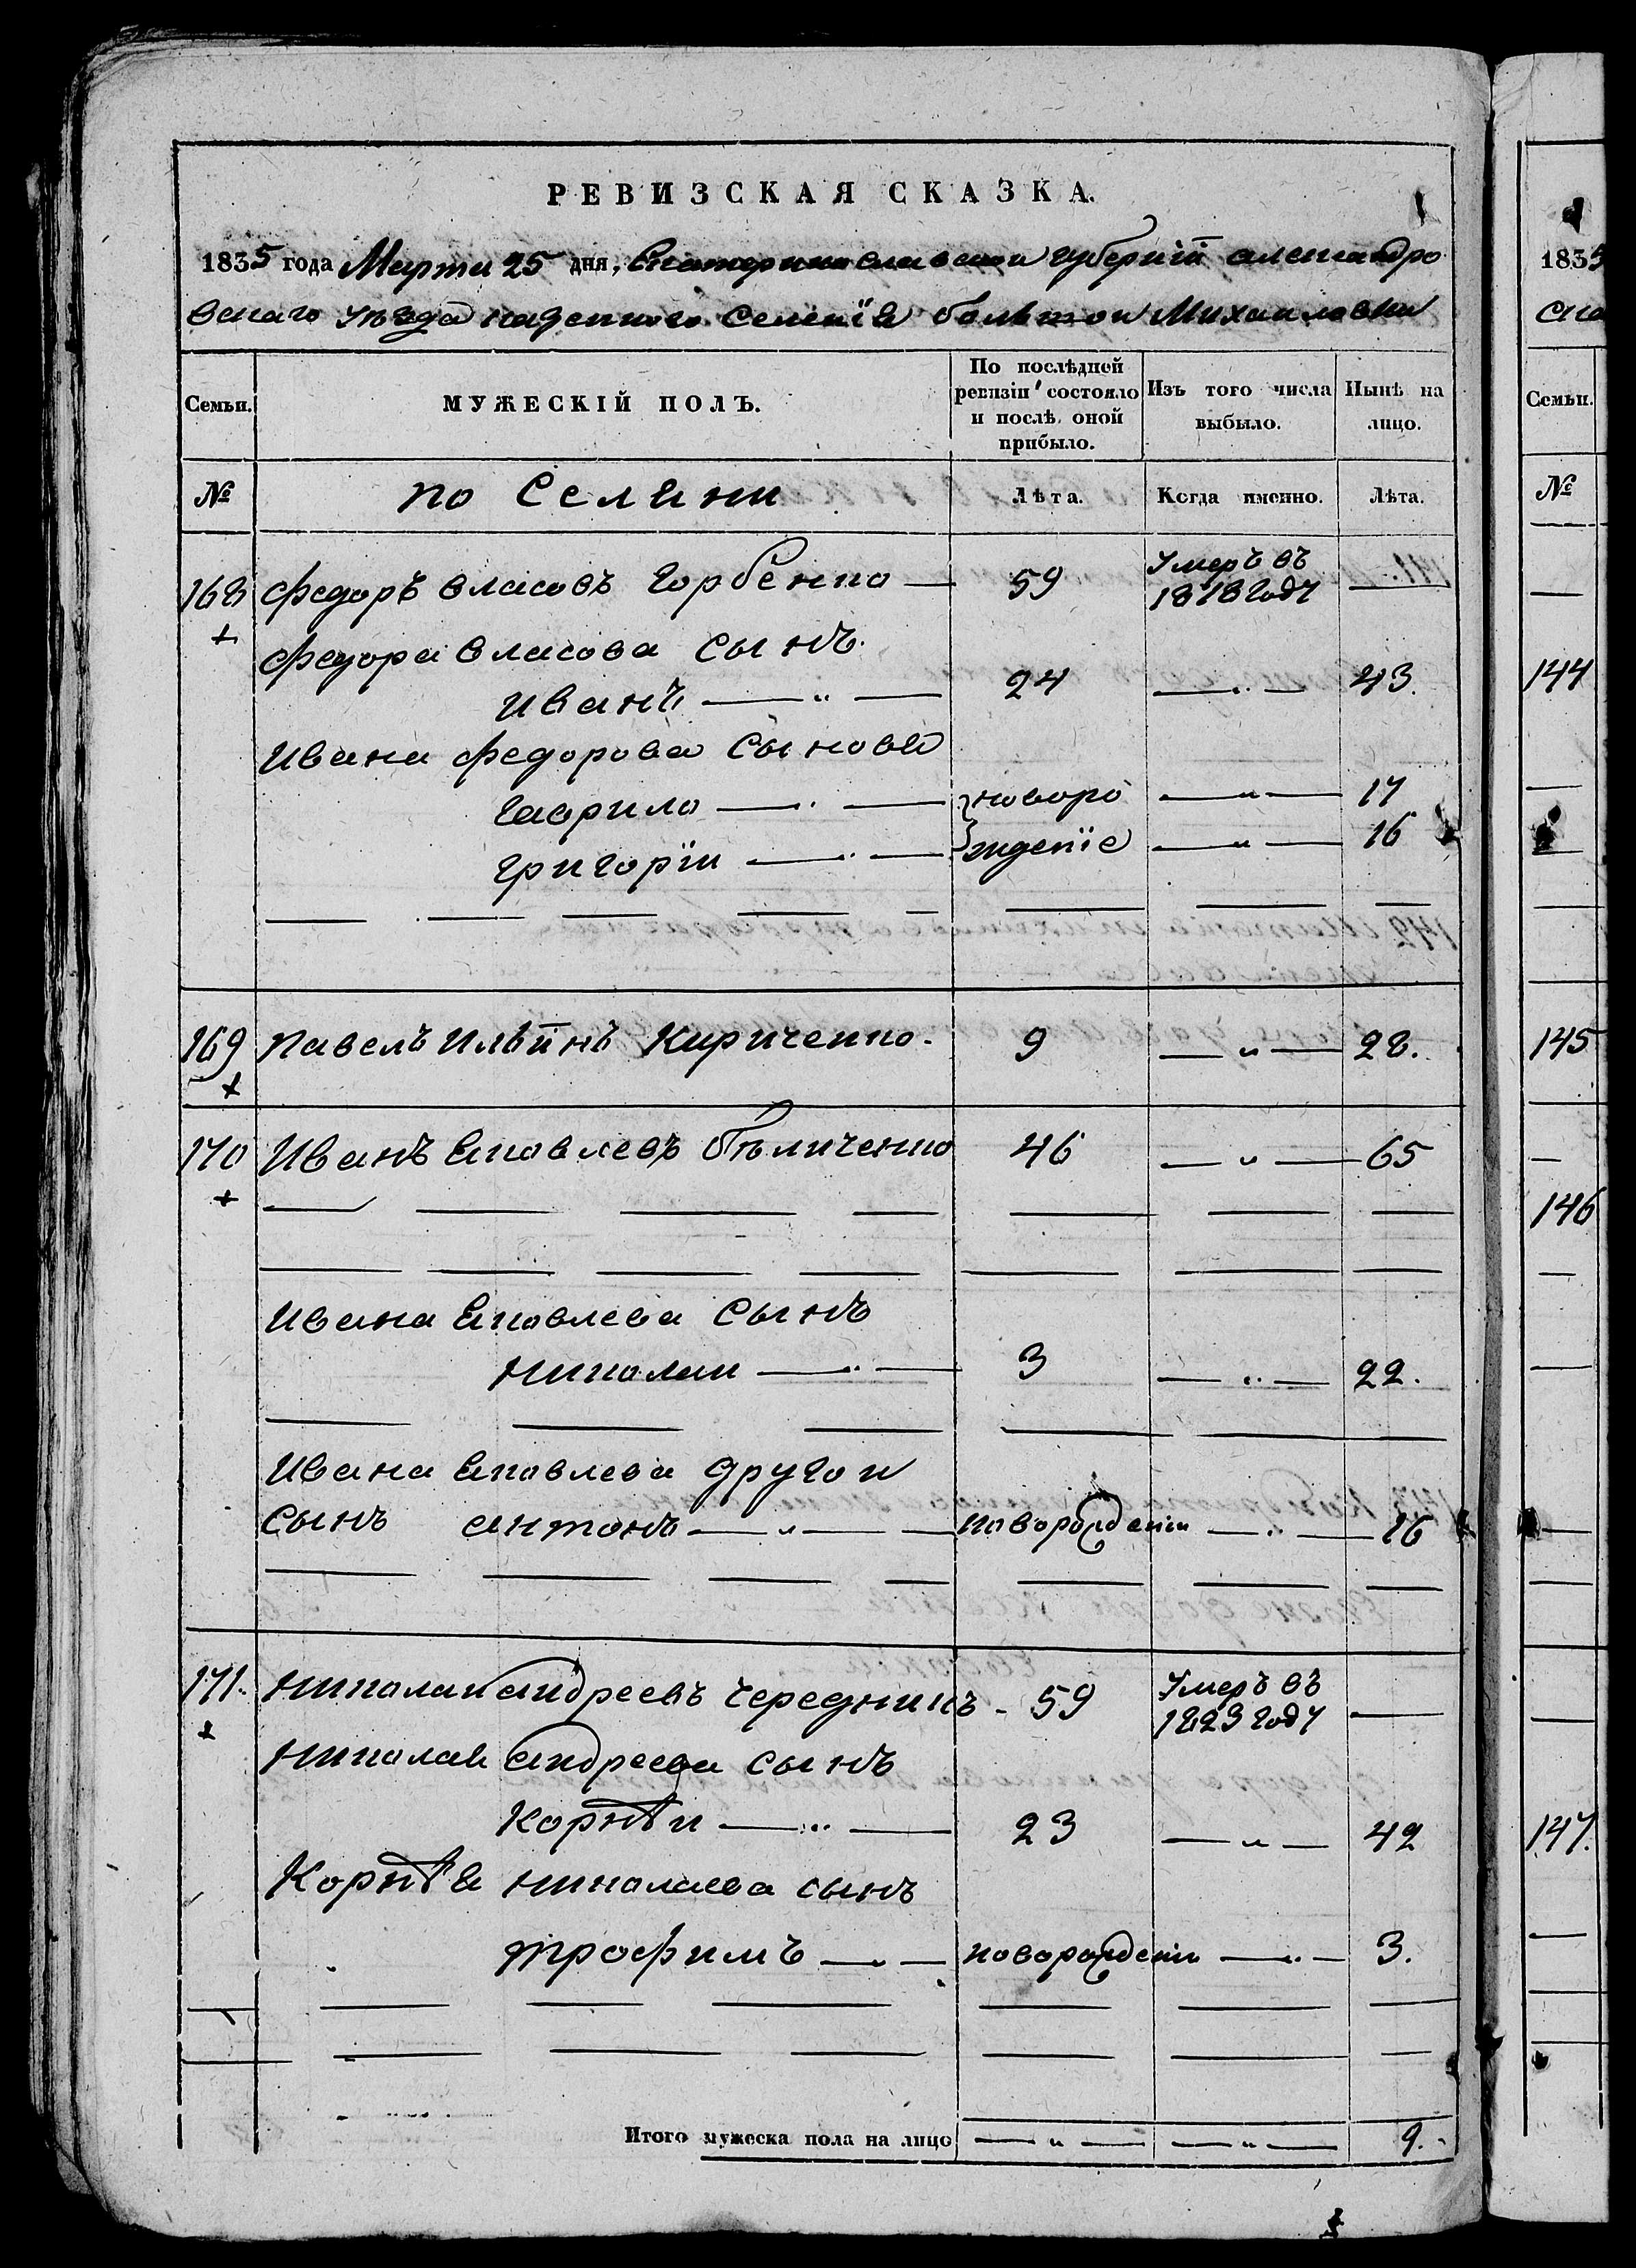 РЕВИЗСКАЯ СКАЗКА.
1835 года Марта 25 дня, Екатеринославской губернiи александро
вскаго уѣзда казенного Селенiя большой Михайловки
Семьи. МУЖЕСКІЙ ПОЛЪ. По послѣдней ревизіи состояло и послѣ оной прибыло. Изъ того числа выбыло. Нынѣ на лицо.
№ по Селяни Лѣта. Когда именно. Лѣта.
168 Федоръ власовъ Горбенко — 59 Умеръ въ 1818 году —
Федора власова сынъ
иванъ — " — 24 — " — 43.
Ивана федорова сыновя
Гаврило — " — } новоро — " — 17
григорiи — " — } жденiе — " — 16
169 павелъ Ильинъ Кириченко. 9 — " — 28.
170 Иванъ Яковлевъ бѣличенко 46 — " — 65
Ивана Яковлева сынъ
николаи — " — 3 — " — 22.
Ивана Яковлева другои
сынъ антонъ — " — новорожденiи — " — 16
171. николаи андреевъ чередникъ - 59 Умеръ въ 1823 году —
николая андреева сынъ
Корнѣи — " — 23 — " — 42
Корнѣя николаева сынъ
трофимъ — " — новорожденiи — " — 3.
Итого мужеска пола на лицо — " — — " — 9.
1835
ска
Семьи.
№
144
145
146
147.